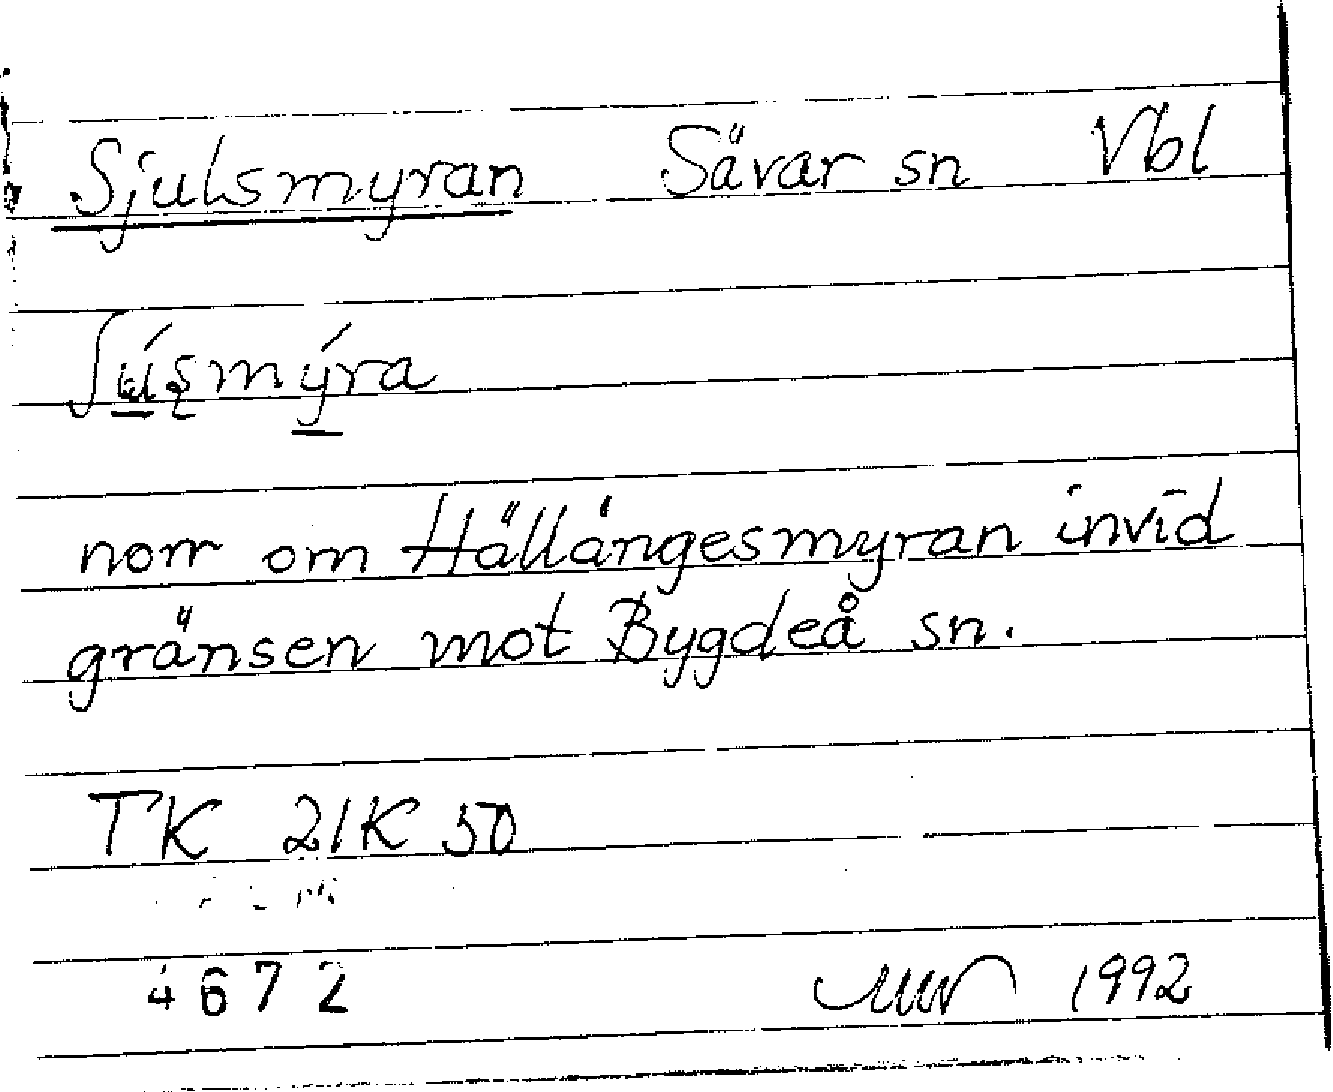 Sjulsmyran Sävar sn Vbl
ʃú̲ʂmý̲ra
norr om Hällångesmyran invid
gränsen mot Bygdeå sn.
TK 21K 5D
4672 1992